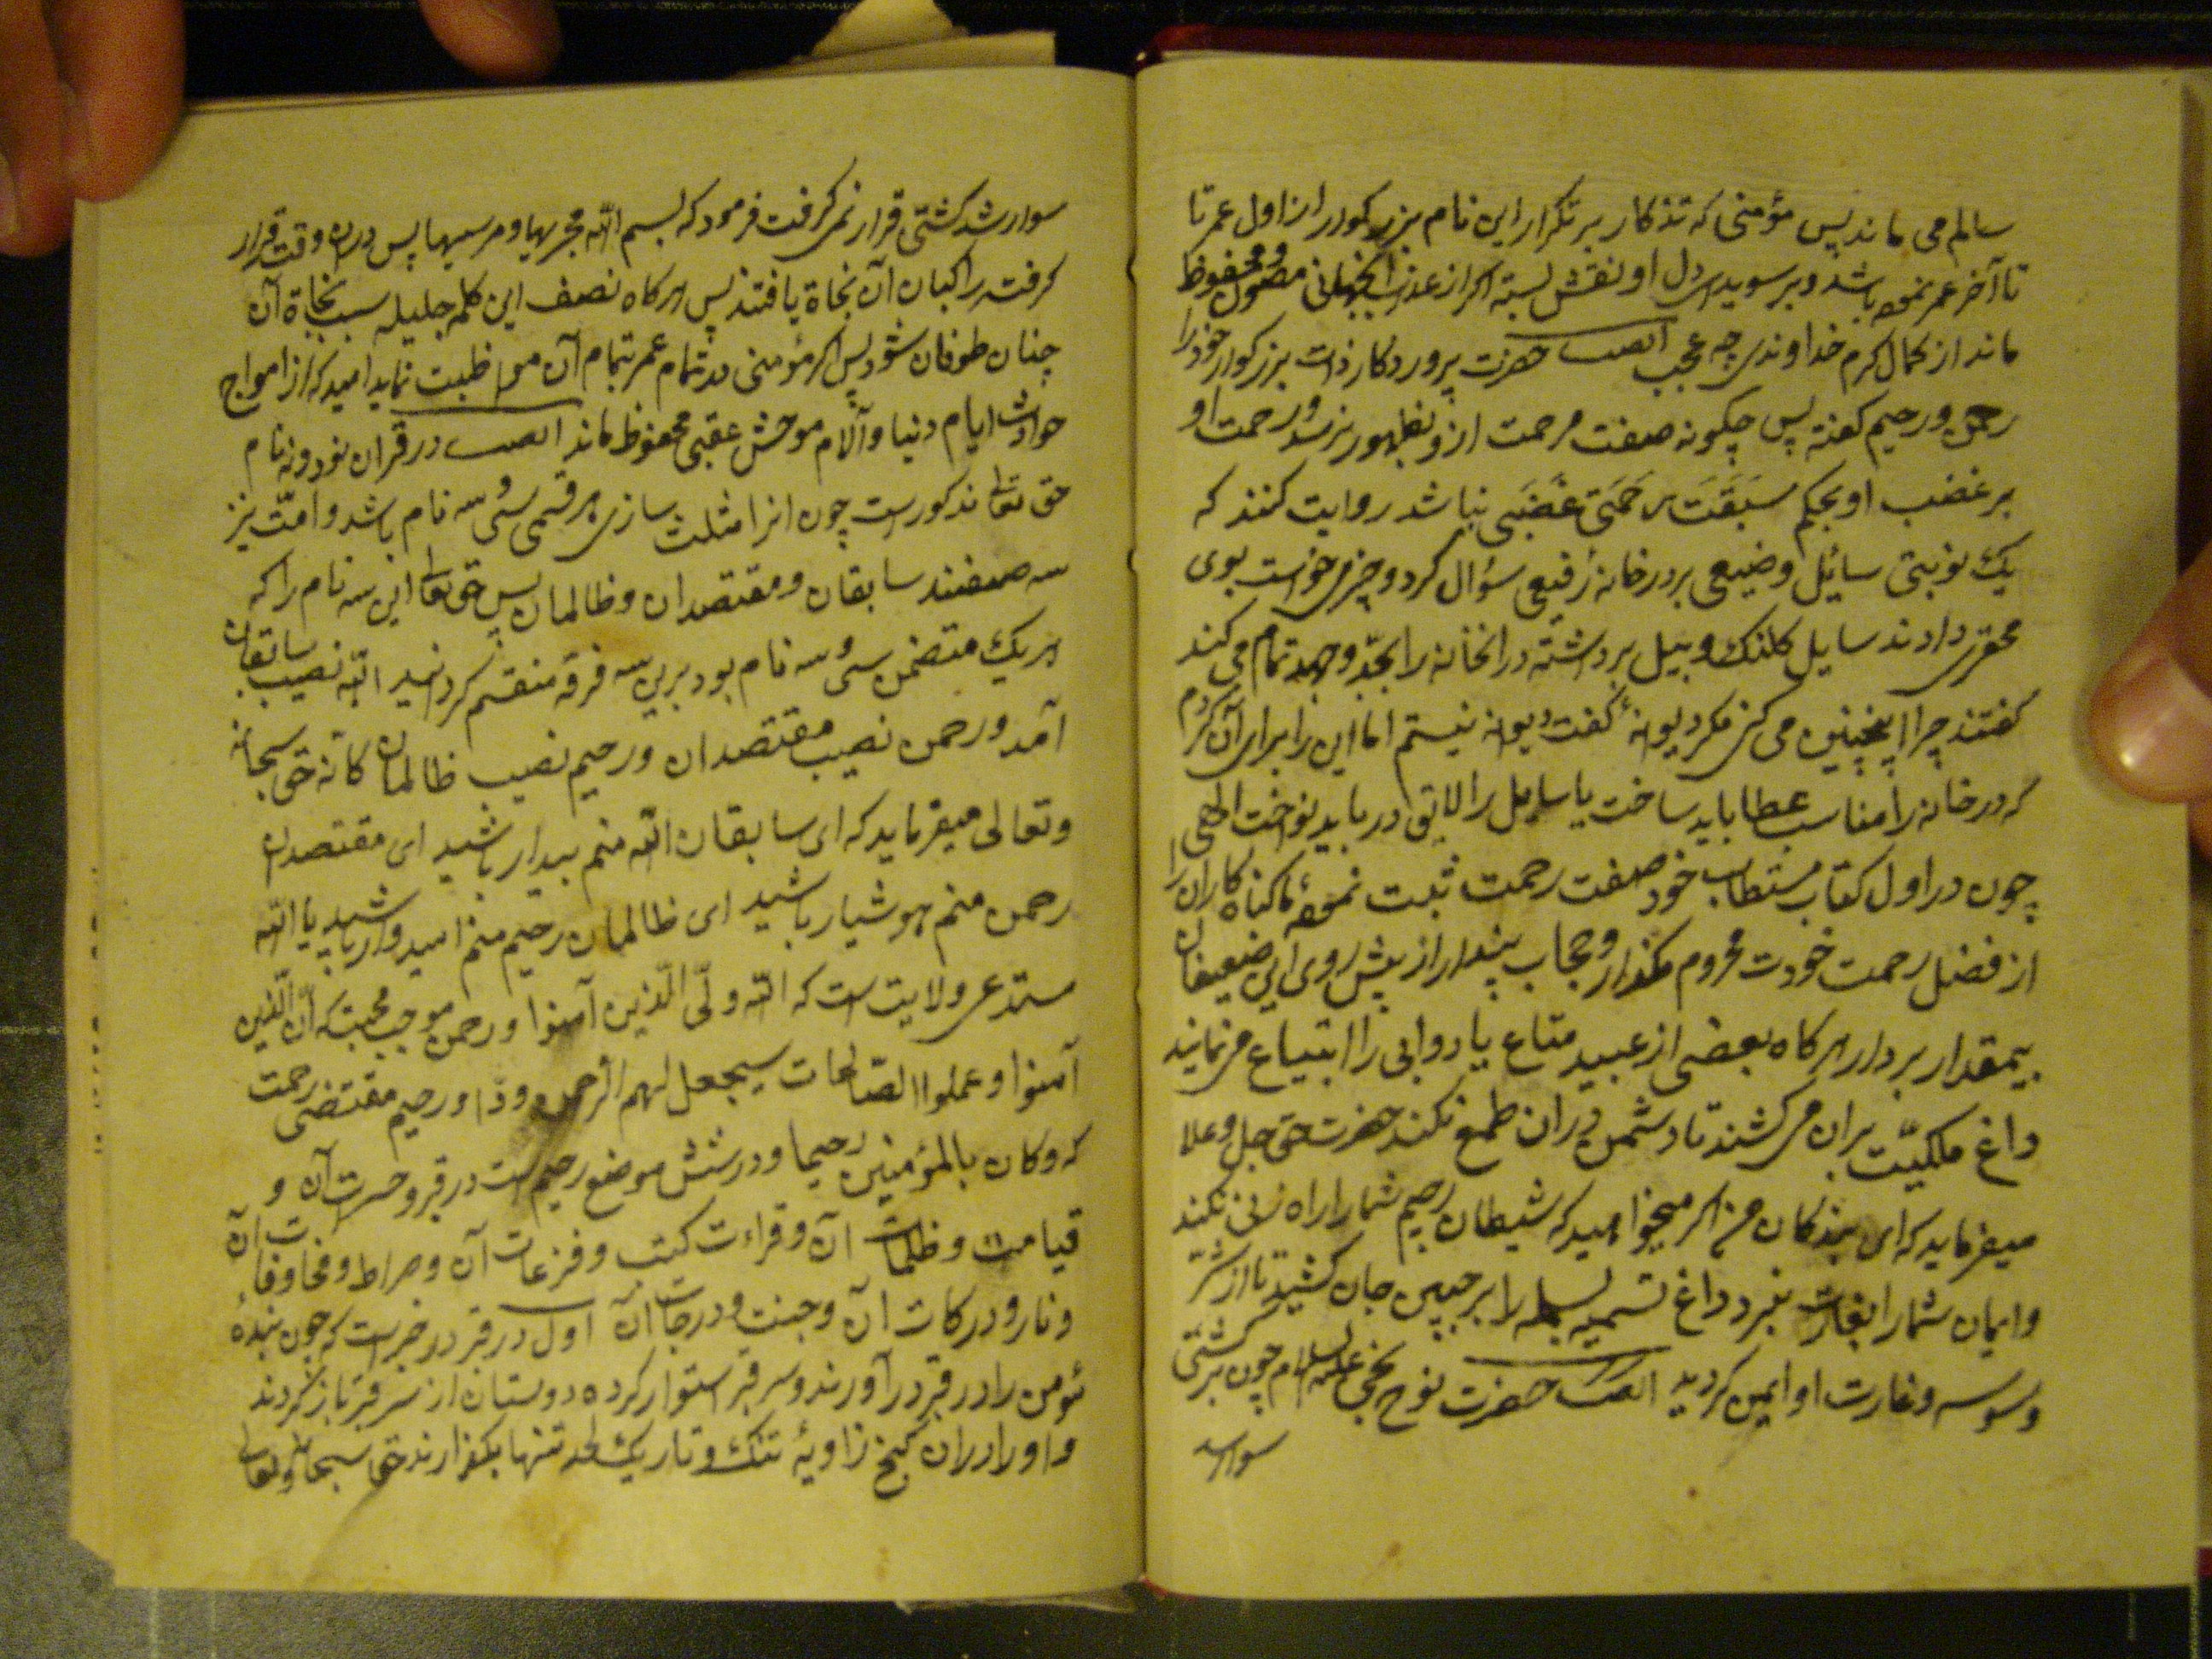 سالم می ماند پس مؤمنی که تذکار بر تکرار این نام بزرکوار از اول عمر تا
تا آخر عمر نموه باشد و بر سویدای دل او نقش بسته اکر از عذاب آنجهانی مصون و محفوظ
ماند از کمال کرم خداوندی چه عجب ایضــــا حضرت پروردکار ذات بزرکوار خود را
رحمن و رحیم کفته پس چکونه صفت مرحمت ازو بظهور نرسد و رحمت او
بر غضب او بحکم سَبَقَت رَحمَتی غَضَبی نباشد روایت کنند که
یک نوبتی سائل وضیعی بر در خانهٔ رفیعی سؤال کرد و چیزی خواست بوی
محقری دادند سایل کلنک و بیل برداشته در انخانه را بجدّ و جهد تمام می کند
کفتند چرا اینچنین می کنی مکر دیوانهٔ کفت دیوانه نیستم اما این را برای آن کردم
که در خانه را مناسب عطا باید ساخت یا سایل را لایق در باید نواخت الهی
چون در اول کتاب مستطاب خود صفت رحمت ثبت نموهٔ ما کناه کاران را
از فضل رحمت خودت محروم مکذار و حجاب پندار از پیش روی این ضعیفان
بیمقدار بردار هرکاه بعضی از عبید متاع یا دوابی را ابتیاع می نمایند
داغ ملکیّت بران می کشند تا دشمن دران طمع نکند حضرت حق جل و علا
میفرماید که ای بندکان من اکر میخواهید که شیطان رجیم شما را راه زنی نکند
و ایمان شما را بغارت نبرد داغ تسمیه بسمله را بر جبین جان کشید تا از شرّ
وسوسه و غارت او ایمن کردید ایضــا حضرت نوح نجی علیه السلام چون بر کشتی
سوار شد
سوار شد کشتی قرار نمی کرفت فرمود که بسم الله مجریها و مرسیها پس دران وقت قرار
کرفت راکبان آن نجاة یافتند پس هرکاه نصف این کلمه جلیله سبب نجاة آن
چنان طوفان شود پس اکر مؤمنی در تمام عمر بتمام آن مواظبت نماید امید که از امواج
حوادث ایام دنیا و آلام موحش عقبی محفوظ ماند ایضــــا در قران نود و نه نام
حق تعا مذکور است چون انرا مثلث سازی هر قسمی سی و سه نام باشد و امّت نیز
سه صنفند سابقان و مقتصدان و ظالمان پس حق تعا این سه نام را که
هریک متضمن سی و سه نام بود برین سه فرقه منقسم کردانید الله نصیب سابقان
آمد و رحمن نصیب مقتصدان و رحیم نصیب ظالمان کانه حق سبحانه
و تعالی میفرماید که ای سابقان الله منم بیدار باشید ای مقتصدان
رحمن منم هوشیار باشید ای ظالمان رحیم منم امیدوار باشید یا الله
مستدعی ولایت است که الله ولّی الّذین آمنوا و رحمن موجب محبت که انّ الّذین
آمنوا و عملوا الصّالحات سیجعل لهم الرحمن ودّا و رحیم مقتضی رحمت
که و کان بالمؤمنین رحیما و در شش موضع رحیم است در قبر و حسرت آن و
قیامت و ظلمات آن و قراءت کتب و فزعات آن و صراط و مخافات آن
و نار و درکات آن و جنت و درجات آن اول در قبر در خبر است که چون بندهٔ
مؤمن را در قبر در آورند و سر قبر استوار کرده دوستان از سر قبر باز کردند
و او را دران کنج زاویهٔ تنک و تاریک لحد تنها بکذارند حق سبحانه و تعالی